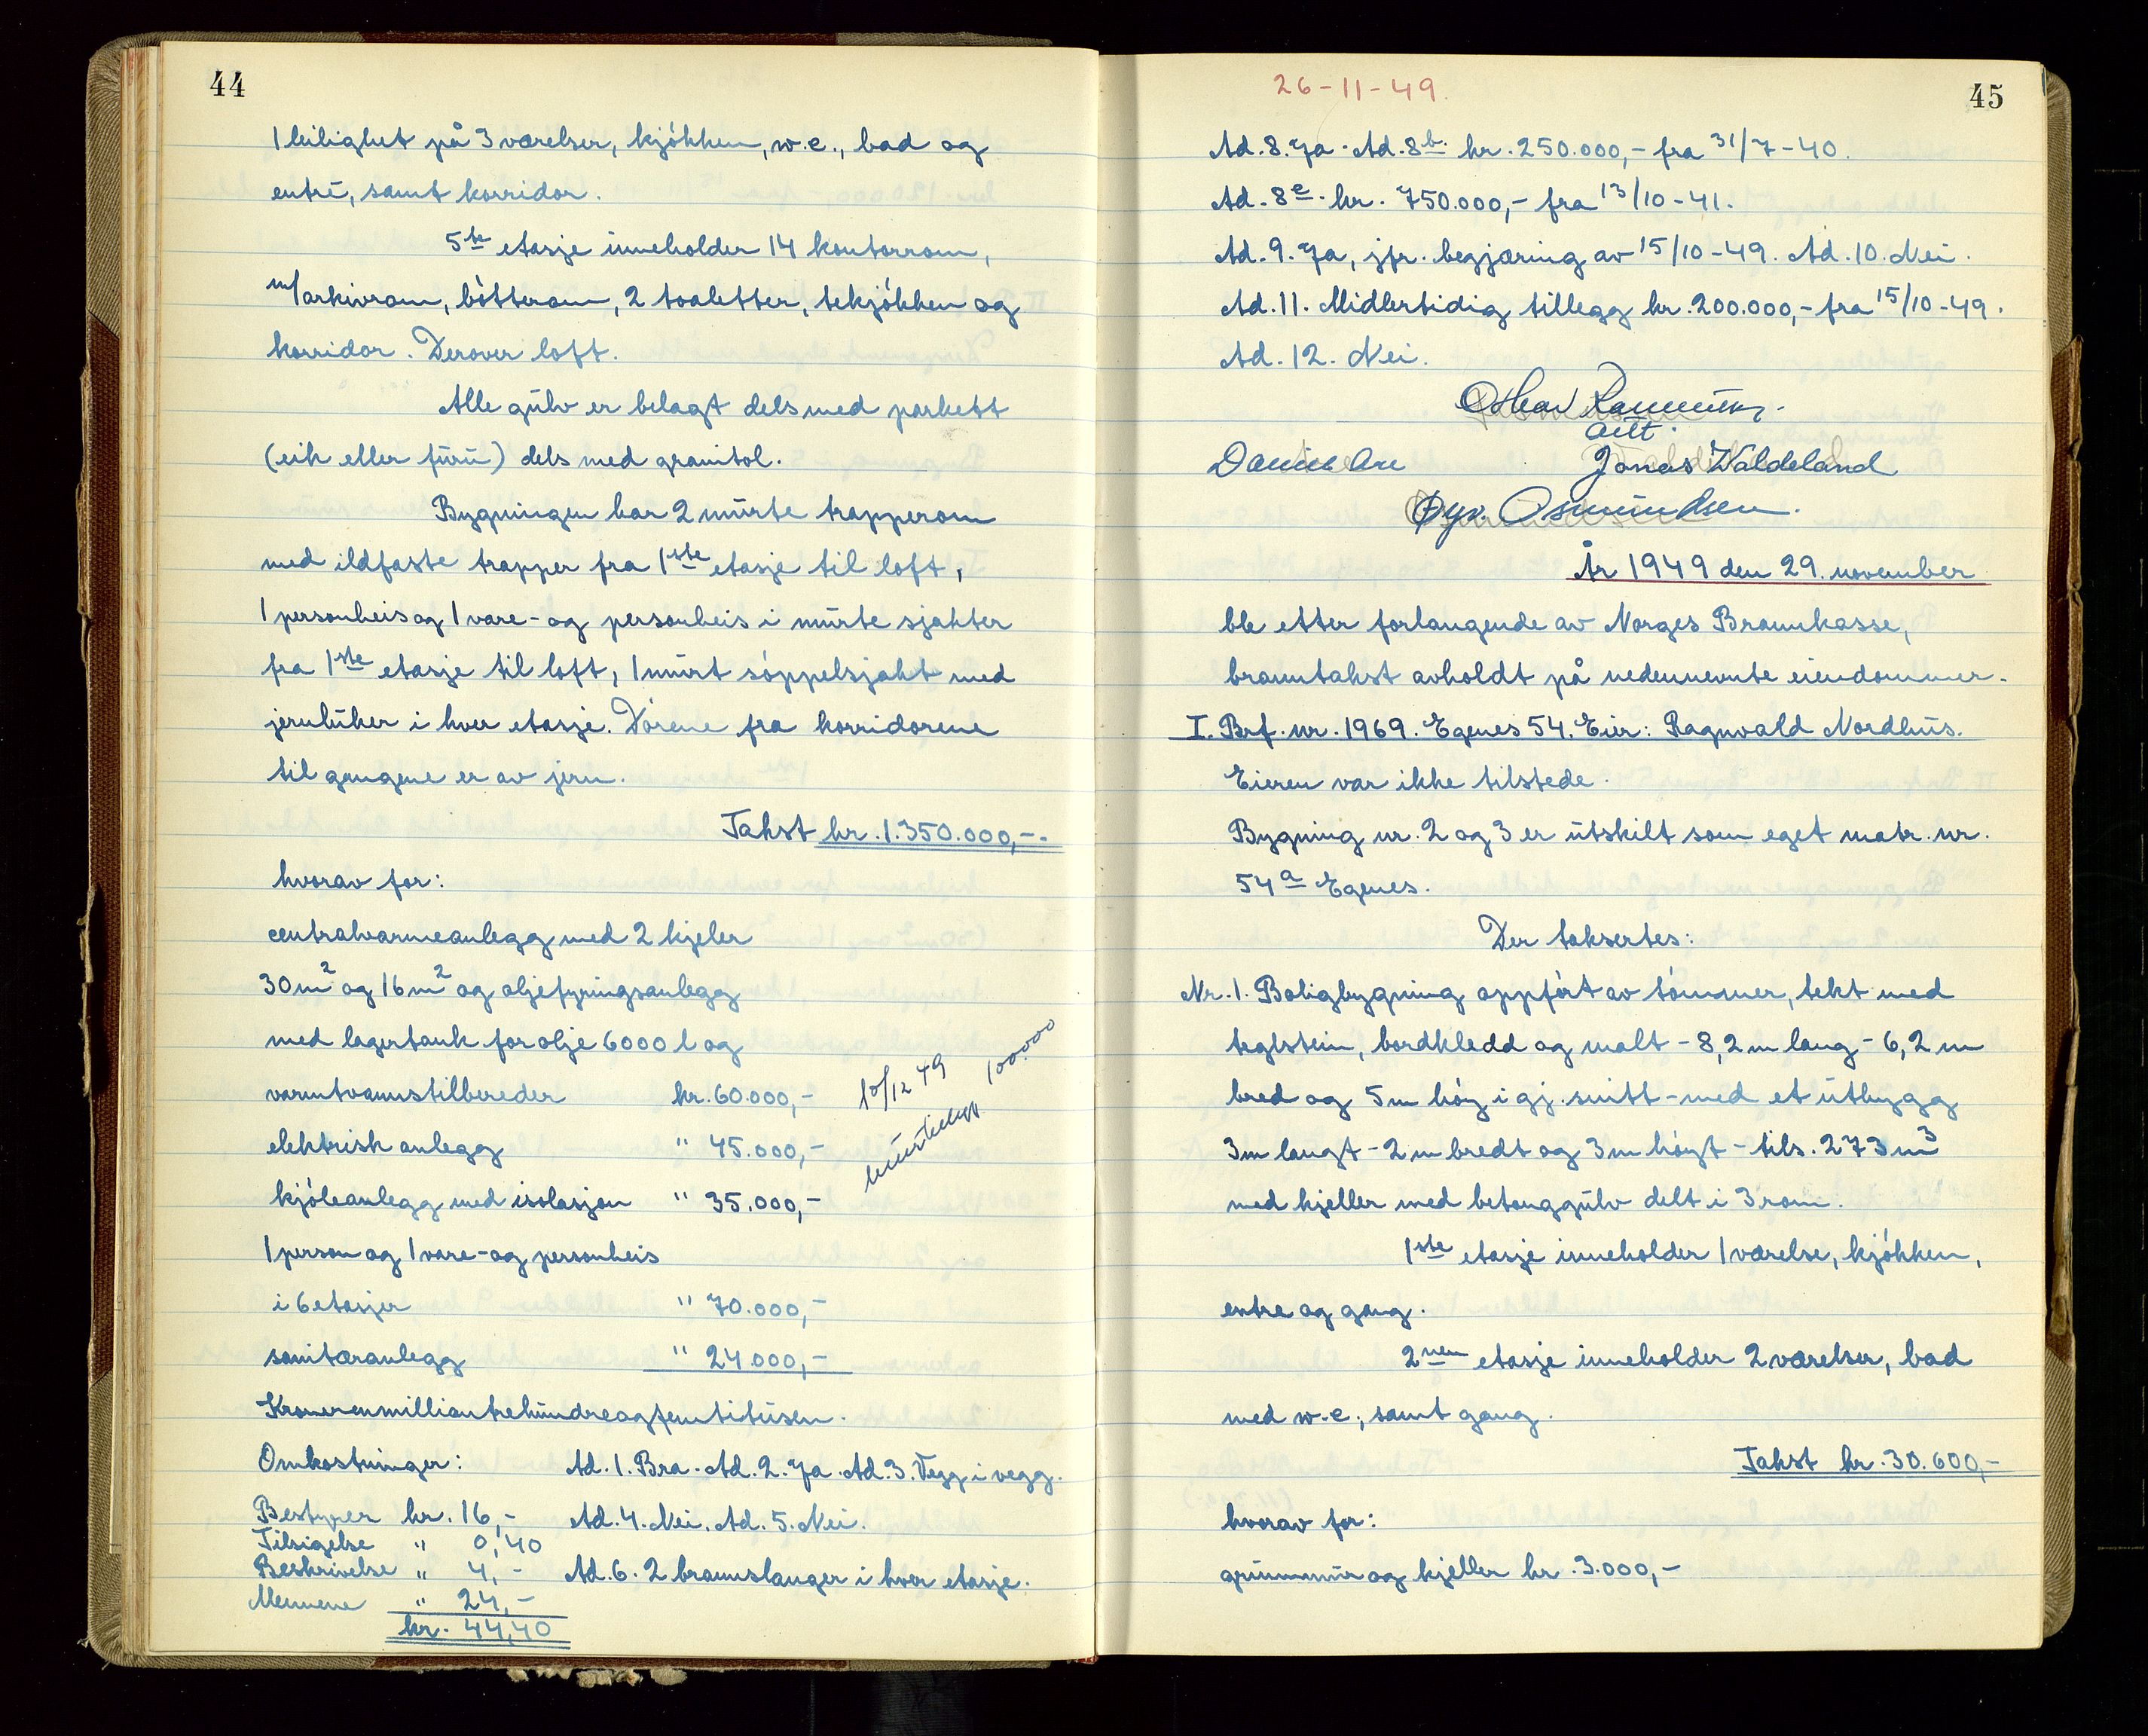 44
1 leilighet på 3 værelser, kjøkken, w.c., bad og
entré, samt korridor.
5te etasje inneholder 14 kontorrom,
m/arkivrom, bötterom, 2 toaletter, tekjøkken og
korridor. Derover loft.
Alle gulv er belagt dels med parkett
(eik eller furu) dels med granitol.
Bygningen har 2 murte trapperom
med ildfaste trapper fra 1ste etasje til loft,
1 personheis og 1 vare- og personheis i murte sjakter
fra 1ste etasje til loft, 1 murt søppelsjakt med
jernluker i hver etasje. Dørene fra korridorene
til gangene er av jern.
Takst kr. 1.350.000,-.
hvorav for:
centralvarmeanlegg med 2 kjeler
30 m² og 16 m² og oljefyringsanlegg
med lagertank for olje 6000 l og
varmtvannstilbereder kr. 60.000,-
elektrisk anlegg " 45.000,-
kjøleanlegg med isolasjon " 35.000,-
1 person og 1 vare- og personheis
i 6 etasjer " 70.000,-
sanitæranlegg " 24.000,-
10/12 49 100.000
Kronerenmilliontrehundreogfemtitusen.
Omkostninger: Ad. 1. Bra. Ad. 2. Ja. Ad. 3. Vegg i vegg.
Bestyrer kr. 16,- Ad. 4. Nei. Ad. 5. Nei.
Tilsigelse " 0,40
Beskrivelse " 4,- Ad. 6. 2 brannslanger i hver etasje.
Mennene " 24,-
kr. 44,40
26-11-49.
45
Ad. 8. Ja. Ad. 8b. kr. 250.000,- fra 31/7-40.
Ad. 8c. kr. 750.000,- fra 13/10-41.
Ad. 9. Ja, jfr. begjæring av 15/10-49. Ad. 10. Nei.
Ad. 11. Midlertidig tillegg kr. 200.000,- fra 15/10-49.
Ad. 12. Nei.
Jonas Waldeland
Osmundsen.
År 1949 den 29. november
ble etter forlangende av Norges Brannkasse,
branntakst avholdt på nedennevnte eiendommer.
I. Brf. nr. 1969. Egenes 54. Eier: Ragnvald Nordhus.
Eieren var ikke tilstede.
Bygning nr. 2 og 3 er utskilt som eget matr. nr.
54a Egenes.
Der taksertes:
Nr. 1. Boligbygning oppført av tømmer, tekt med
teglstein, bordkledd og malt - 8,2 m lang - 6,2 m
bred og 5 m høy i gj. snitt - med et utbygg
3 m langt - 2 m bredt og 3 m høyt - tils. 273 m³
med kjeller med betonggulv delt i 3 rom.
1ste etasje inneholder 1 værelse, kjøkken,
entre og gang.
2nen etasje inneholder 2 værelser, bad
med w.c., samt gang.
Takst kr. 30.600,-
hvorav for:
grunnmur og kjeller kr. 3.000,-